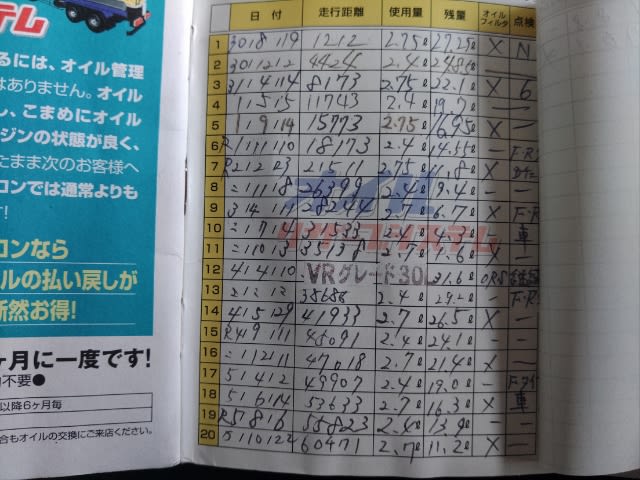 テム
るには、オイル管理
はありません。オイル
し、こまめにオイル
ジンの状態が良く、
たまま次のお客様へ
コンでは通常よりも
す!
コンなら
ルの払い戻しが
断然お得!
ヶ月に一度です!
不要●
以降6ヶ月毎
合もオイルの交換にご来店ください。
日付 走行距離 使用量 残量 オイルフィルタ 点検
1 30 8 19 1212 2.75ℓ 27.25ℓ X N
2 30 12 12 4424 2.4ℓ 24.85ℓ
3 31 4 14 8173 2.75ℓ 22.1ℓ X 6
4 1 5 15 11743 2.4ℓ 19.7ℓ —
5 1 9 14 15773 2.75ℓ 16.95ℓ X —
6 R1 11 10 18173 2.4ℓ 14.55ℓ —
7 R2 12 23 21511 2.75ℓ 11.8ℓ X
8 26399 2.4ℓ 9.4ℓ — —
9 3 4 11 28244 2.7ℓ 6.7ℓ X F・R
10 31533 2.4ℓ 4.3ℓ — 車
11 35138 2.7ℓ 1.6ℓ X —
12 4 4 10 VRグレード30L 31.6ℓ
13 38686 2.4ℓ 29.2ℓ — F・R
14 4 5 29 41933 2.7ℓ 26.5ℓ X —
15 R4 9 11 45091 2.4ℓ 24.1ℓ — —
16 47018 2.7ℓ 21.4ℓ X —
17 5 4 2 49907 2.4ℓ 19.0ℓ —
18 5 6 14 53633 2.7ℓ 16.3ℓ X 車
19 R5 8 16 55823 2.4ℓ 13.9ℓ — —
20 5 10 22 60471 2.7ℓ 11.2ℓ X —